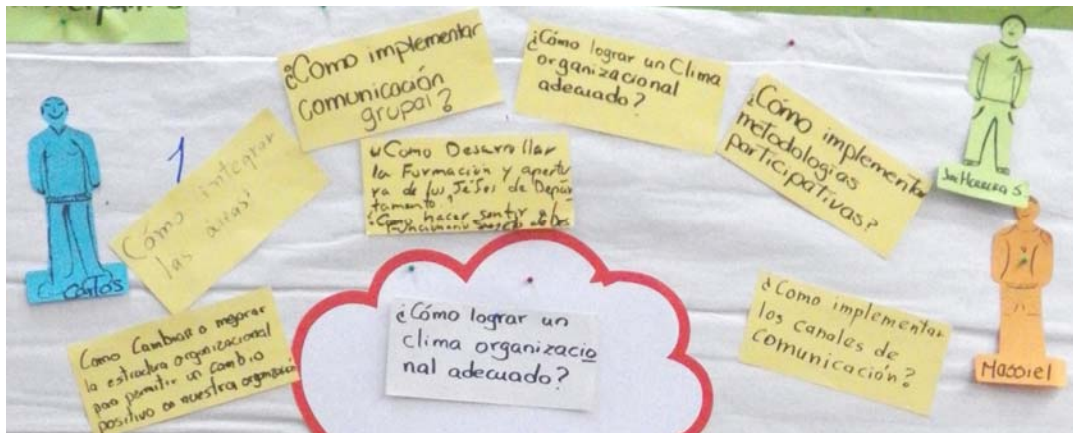 ¿Como implementar
comunicación
grupal?
¿Cómo lograr un Clima
organizacional
adecuado?
¿Cómo implementar
metodologías
participativas?
¿Como Desarrollar
la Formación y apertu
ra de los Jefes de Depar
tamento?
¿Como hacer sentir
funcionario
1
Cómo integrar
las áreas?
Carlos
Como Cambiar o mejorar
la estructura organizacional
para permitir un cambio
positivo en nuestra organización
¿Cómo lograr un
clima organizacio
nal adecuado?
¿Como implementar
los canales de
comunicación?
Herrera S
Massiel